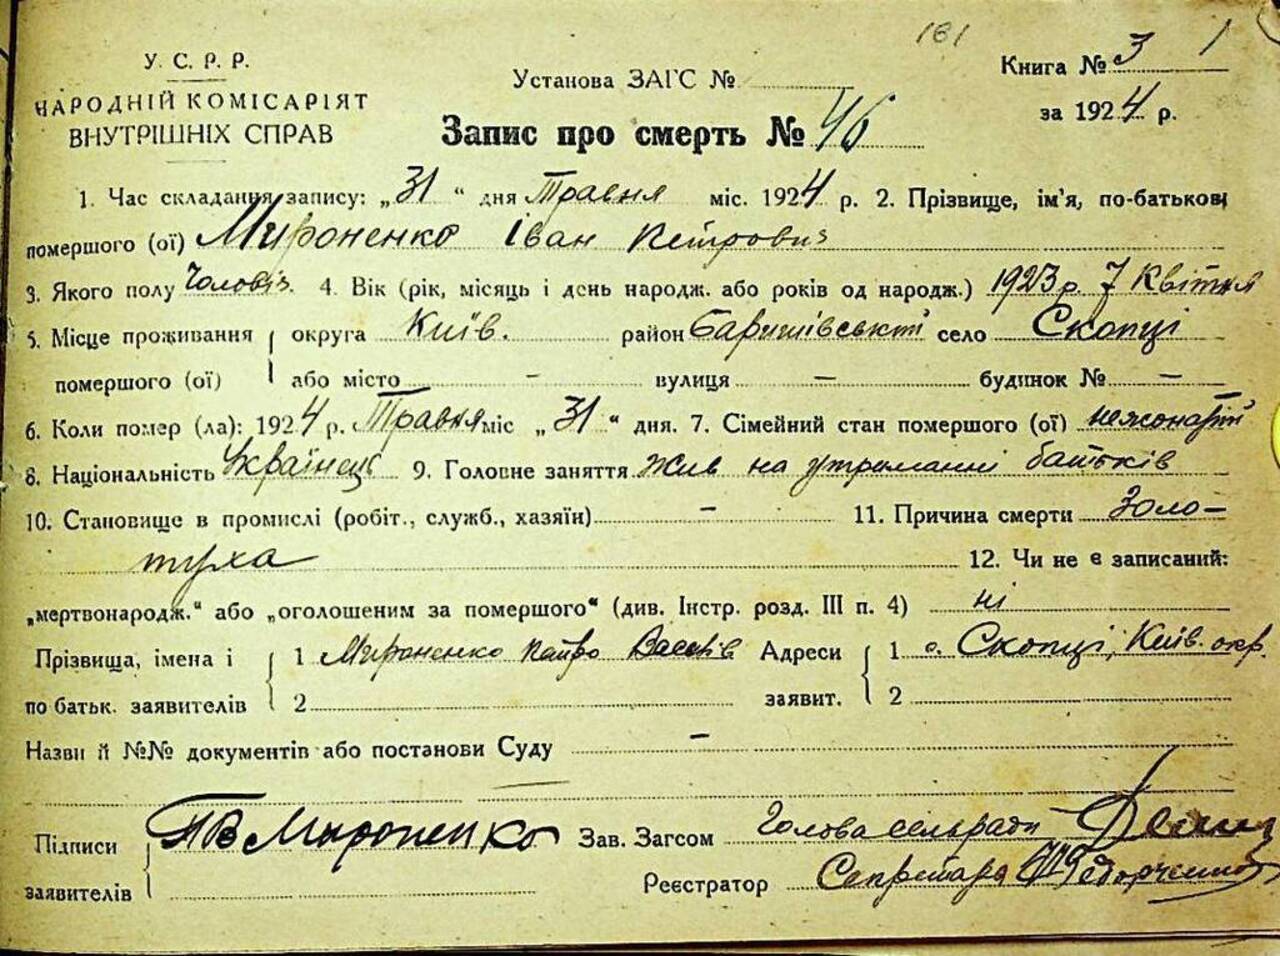 181
1
У. С. Р. Р.
НАРОДНІЙ КОМІСАРІЯТ
ВНУТРІШНІХ СПРАВ
Установа ЗАГС №
Книга № 3
за 1924 р.
Запис про смерть № 46
1. Час складання запису: „31“ дня Травня міс. 1924 р. 2. Прізвище, ім'я, по-батькові
помершого (ої) Мироненко Іван Петрович
3. Якого полу Чоловіч. 4. Вік (рік, місяць і день народж. або років од народж.) 1923 р. 7 Квітня
5. Місце проживання округа Київ. район Баришівський село Скопці
помершого (ої) або місто – вулиця – будинок № –
6. Коли помер (ла): 1924 р. Травня міс „31“ дня. 7. Сімейний стан помершого (ої) нежонатий
8. Національність Українець 9. Головне заняття Жив на утриманні батьків
10. Становище в промислі (робіт., служб., хазяїн) – 11. Причина смерти Золо-
туха 12. Чи не є записаний:
„мертвонародж.“ або „оголошеним за помершого“ (див. Інстр. розд. III п. 4) ні
Прізвища, імена і 1 Мироненко Адреси 1 с. Скопці, Київ. окр.
по батьк. заявителів 2 заявит. 2
Назви й №№ документів або постанови Суду –
Підписи ПВМироненко Зав. Загсом Голова сельради
заявителів Реєстратор Секретарь